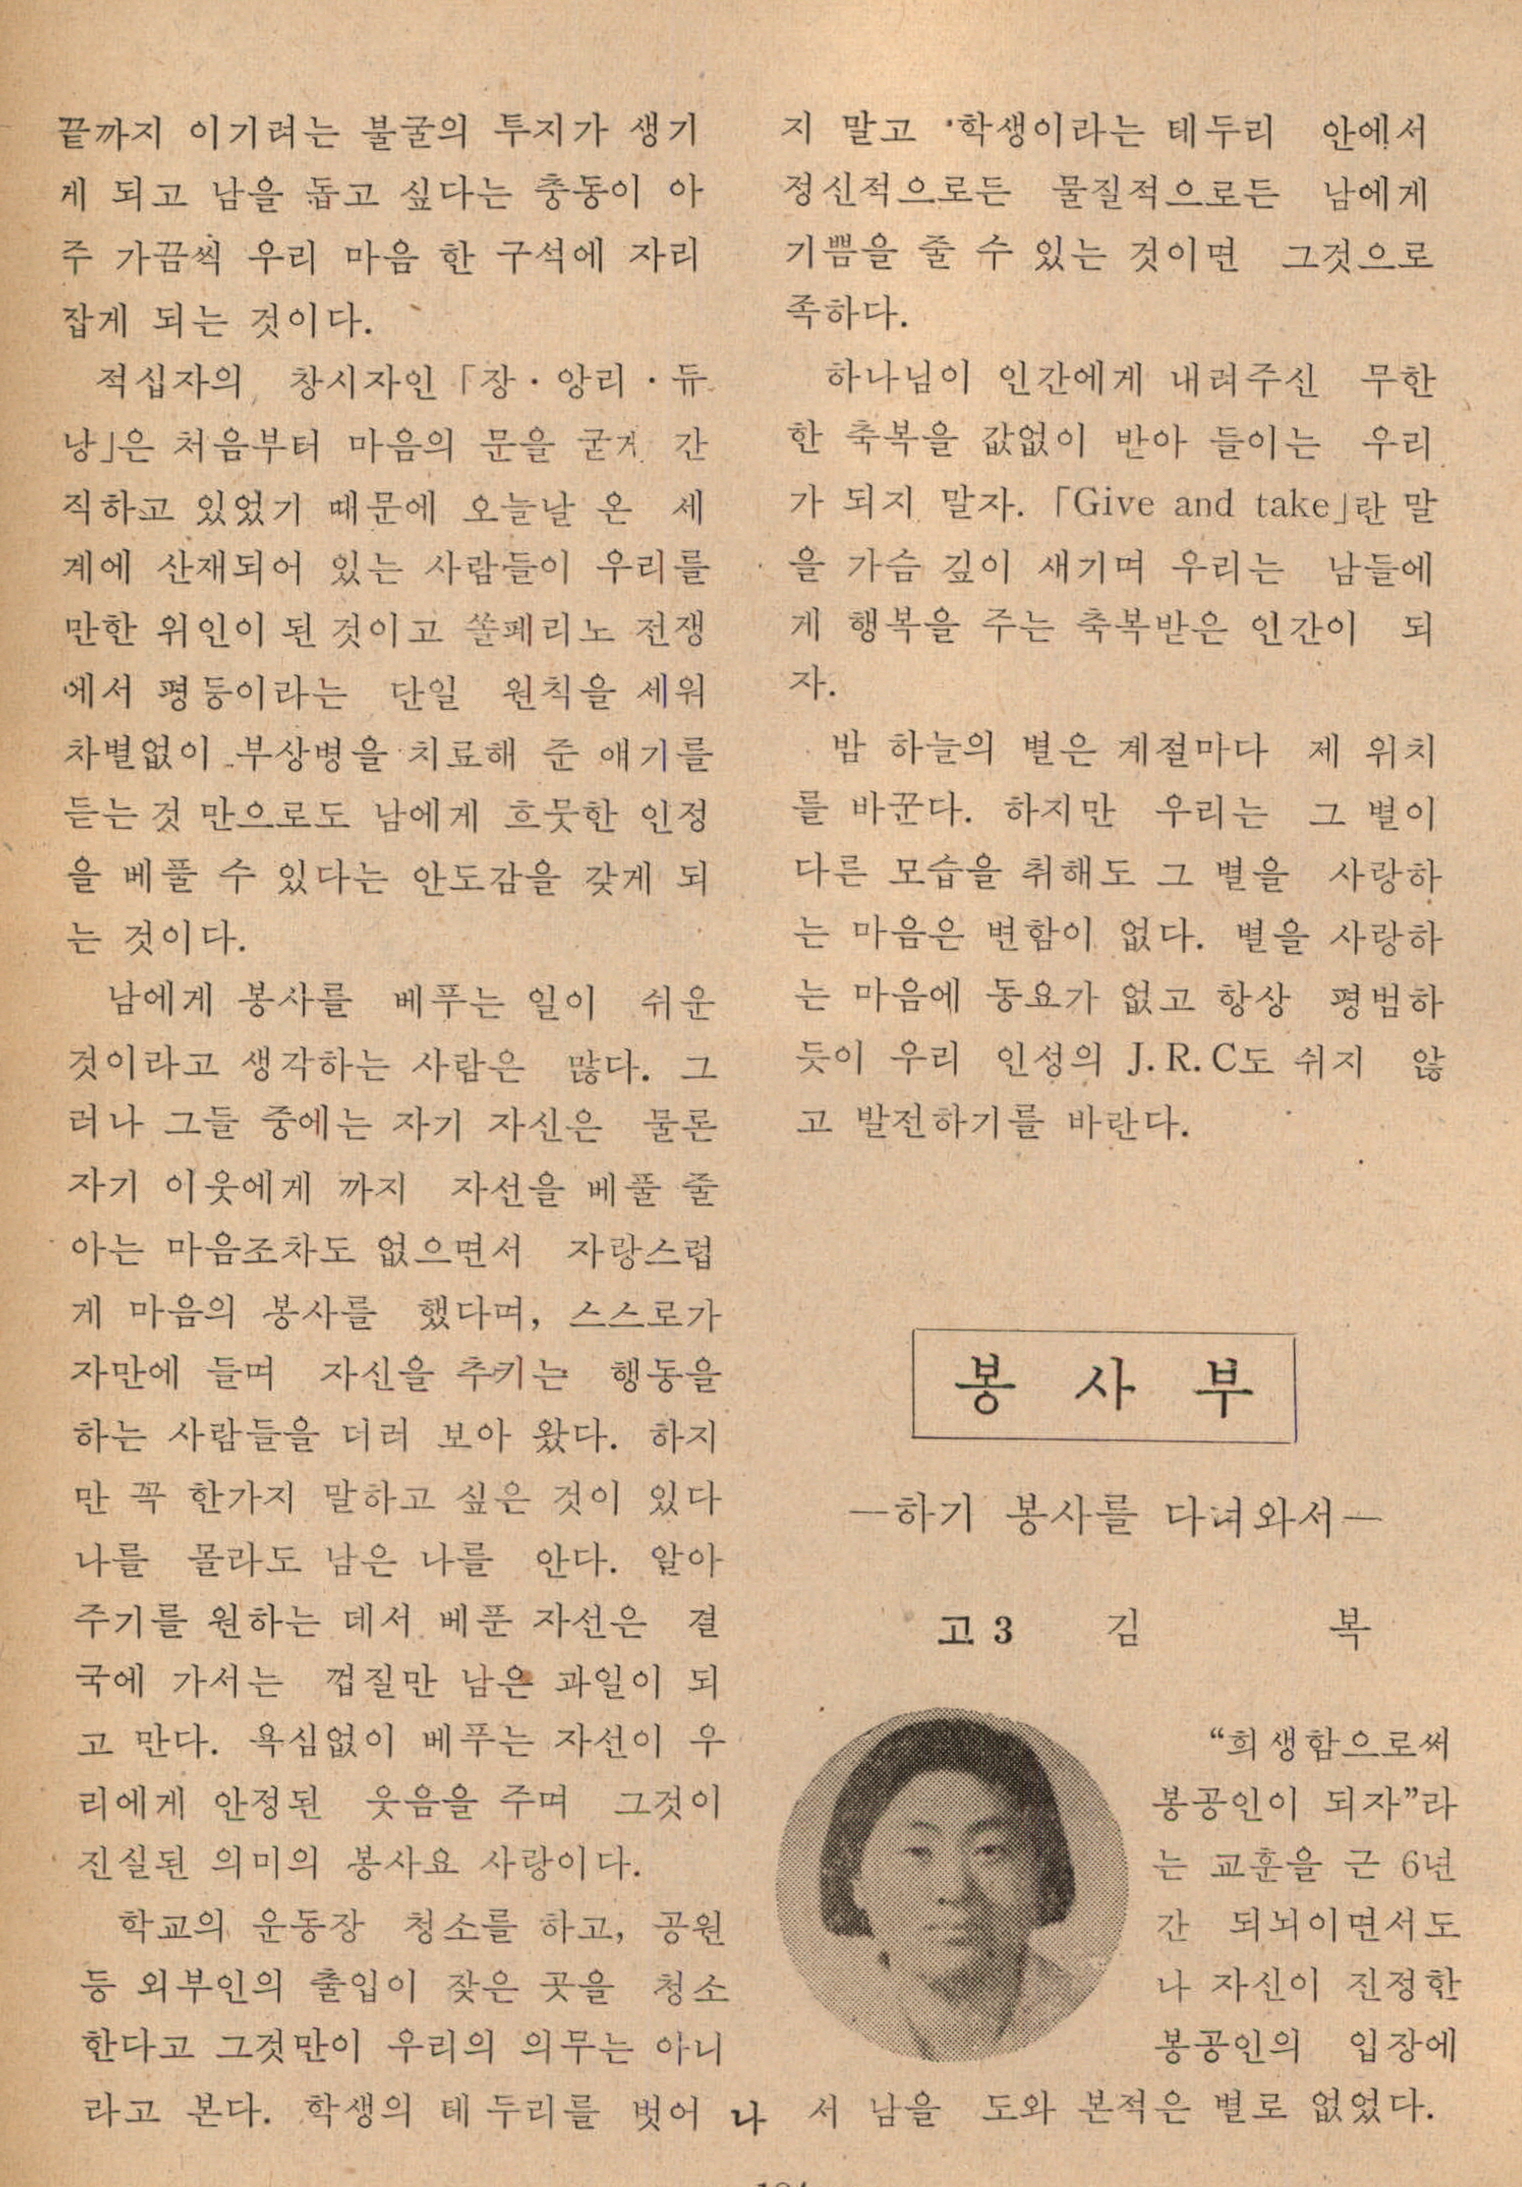 끝까지 이기려는 불굴의 투지가 생기
게 되고 남을 돕고 싶다는 충동이 아
주 가끔씩 우리 마음 한 구석에 자리
잡게 되는 것이다.
적십자의 창시자인 「장·앙리·듀
낭」은 처음부터 마음의 문을 굳게 간
직하고 있었기 때문에 오늘날 온 세
계에 산재되어 있는 사람들이 우리를
만한 위인이 된 것이고 쏠페리노 전쟁
에서 평등이라는 단일 원칙을 세워
차별없이 부상병을 치료해 준 얘기를
듣는 것 만으로도 남에게 흐뭇한 인정
을 베풀 수 있다는 안도감을 갖게 되
는 것이다.
남에게 봉사를 베푸는 일이 쉬운
것이라고 생각하는 사람은 많다. 그
러나 그들 중에는 자기 자신은 물론
자기 이웃에게 까지 자선을 베풀 줄
아는 마음조차도 없으면서 자랑스럽
게 마음의 봉사를 했다며, 스스로가
자만에 들며 자신을 추키는 행동을
하는 사람들을 더러 보아 왔다. 하지
만 꼭 한가지 말하고 싶은 것이 있다
나를 몰라도 남은 나를 안다. 알아
주기를 원하는 데서 베푼 자선은 결
국에 가서는 껍질만 남은 과일이 되
고 만다. 욕심없이 베푸는 자선이 우
리에게 안정된 웃음을 주며 그것이
진실된 의미의 봉사요 사랑이다.
학교의 운동장 청소를 하고, 공원
등 외부인의 출입이 잦은 곳을 청소
한다고 그것만이 우리의 의무는 아니
라고 본다. 학생의 테두리를 벗어 나
지 말고 학생이라는 테두리 안에서
정신적으로든 물질적으로든 남에게
기쁨을 줄 수 있는 것이면 그것으로
족하다.
하나님이 인간에게 내려주신 무한
한 축복을 값없이 받아 들이는 우리
가 되지 말자. 「Give and take」란 말
을 가슴 깊이 새기며 우리는 남들에
게 행복을 주는 축복받은 인간이 되
자.
밤 하늘의 별은 계절마다 제 위치
를 바꾼다. 하지만 우리는 그 별이
다른 모습을 취해도 그 별을 사랑하
는 마음은 변함이 없다. 별을 사랑하
는 마음에 동요가 없고 항상 평범하
듯이 우리 인성의 J.R.C도 쉬지 않
고 발전하기를 바란다.
봉 사 부
—하기 봉사를 다녀와서—
고3 김 복
“희생함으로써
봉공인이 되자”라
는 교훈을 근 6년
간 되뇌이면서도
나 자신이 진정한
봉공인의 입장에
서 남을 도와 본적은 별로 없었다.